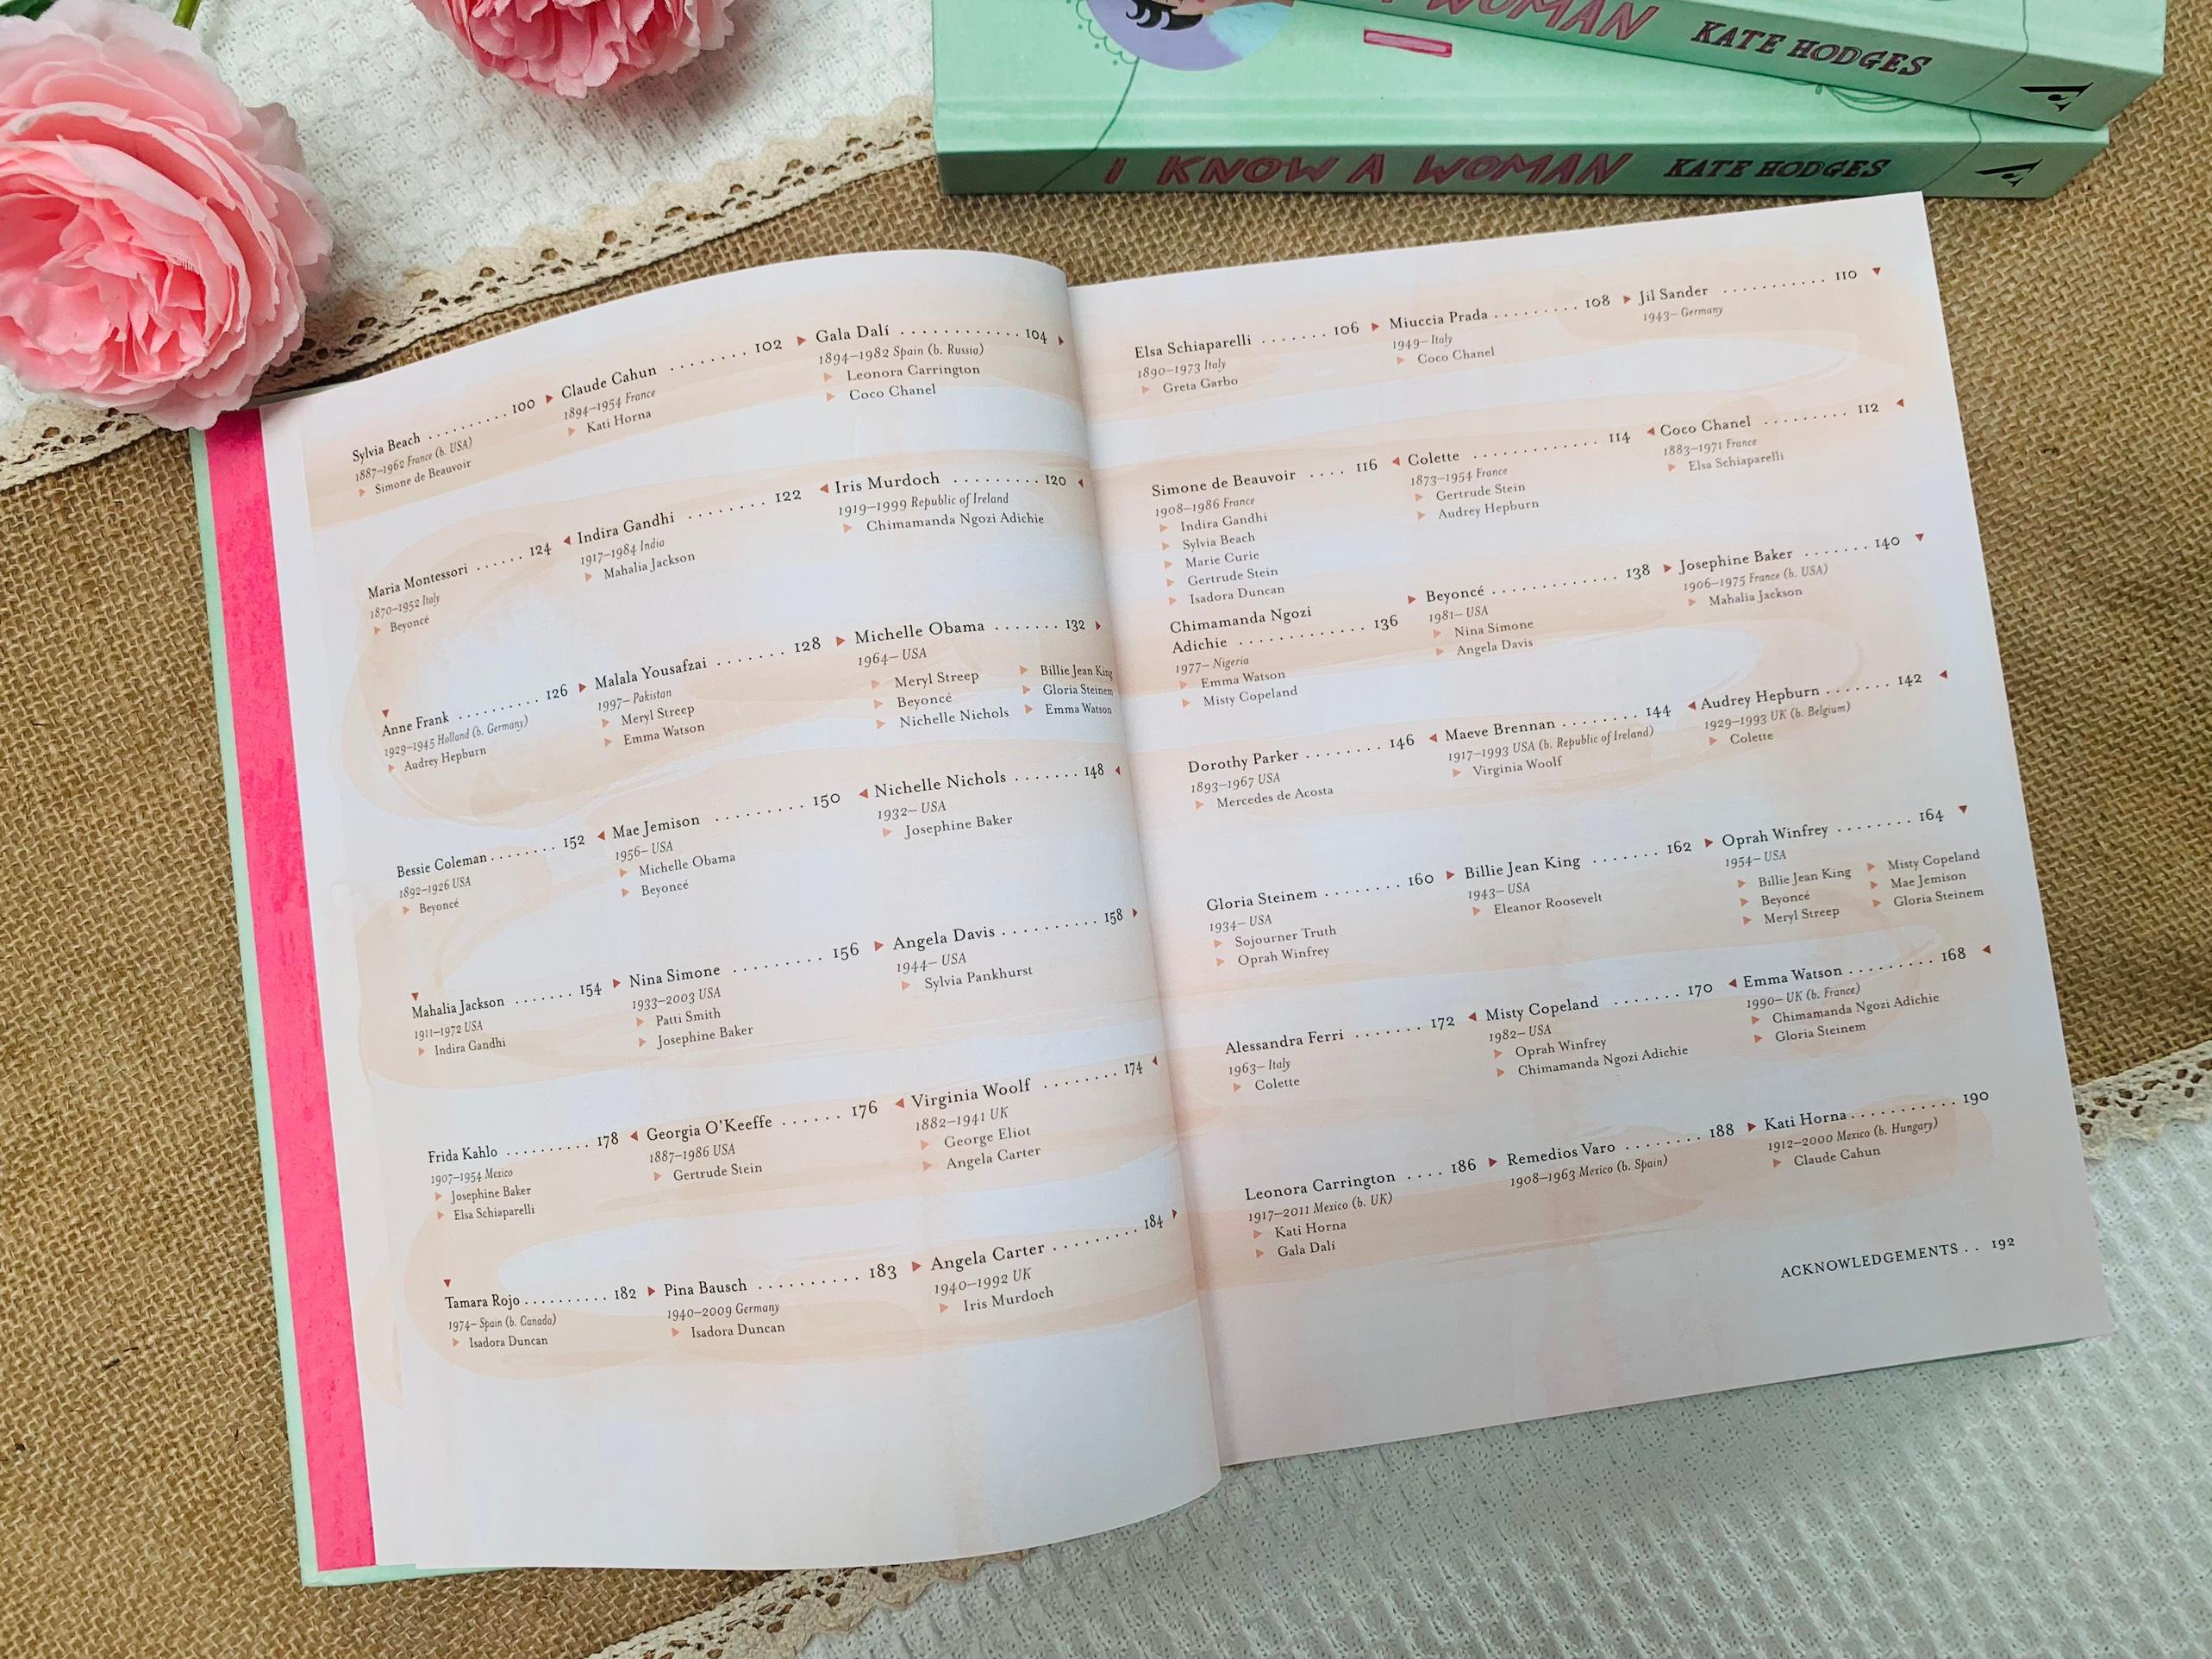 WOMAN KATE HODGES
I KNOW A WOMAN KATE HODGES
Sylvia Beach .......... 100
1887–1962 France (b. USA)
Simone de Beauvoir
Claude Cahun ........ 102
1894–1954 France
Kati Horna
Gala Dalí ............ 104
1894–1982 Spain (b. Russia)
Leonora Carrington
Coco Chanel
Maria Montessori ...... 124
1870–1952 Italy
Beyoncé
Indira Gandhi ........ 122
1917–1984 India
Mahalia Jackson
Iris Murdoch ......... 120
1919–1999 Republic of Ireland
Chimamanda Ngozi Adichie
Anne Frank .......... 126
1929–1945 Holland (b. Germany)
Audrey Hepburn
Malala Yousafzai ....... 128
1997– Pakistan
Meryl Streep
Emma Watson
Michelle Obama ....... 132
1964– USA
Meryl Streep
Beyoncé
Nichelle Nichols
Billie Jean King
Gloria Steinem
Emma Watson
Bessie Coleman ........ 152
1892–1926 USA
Beyoncé
Mae Jemison ......... 150
1956– USA
Michelle Obama
Beyoncé
Nichelle Nichols ....... 148
1932– USA
Josephine Baker
Mahalia Jackson ....... 154
1911–1972 USA
Indira Gandhi
Nina Simone ......... 156
1933–2003 USA
Patti Smith
Josephine Baker
Angela Davis .......... 158
1944– USA
Sylvia Pankhurst
Frida Kahlo .......... 178
1907–1954 Mexico
Josephine Baker
Elsa Schiaparelli
Georgia O'Keeffe ...... 176
1887–1986 USA
Gertrude Stein
Virginia Woolf ........ 174
1882–1941 UK
George Eliot
Angela Carter
Tamara Rojo .......... 182
1974– Spain (b. Canada)
Isadora Duncan
Pina Bausch .......... 183
1940–2009 Germany
Isadora Duncan
Angela Carter ......... 184
1940–1992 UK
Iris Murdoch
Elsa Schiaparelli ....... 106
1890–1973 Italy
Greta Garbo
Miuccia Prada ......... 108
1949– Italy
Coco Chanel
Jil Sander ........... 110
1943– Germany
Simone de Beauvoir .... 116
1908–1986 France
Indira Gandhi
Sylvia Beach
Marie Curie
Gertrude Stein
Isadora Duncan
Colette ............. 114
1873–1954 France
Gertrude Stein
Audrey Hepburn
Coco Chanel ......... 112
1883–1971 France
Elsa Schiaparelli
Chimamanda Ngozi
Adichie ............. 136
1977– Nigeria
Emma Watson
Misty Copeland
Beyoncé ............. 138
1981– USA
Nina Simone
Angela Davis
Josephine Baker ....... 140
1906–1975 France (b. USA)
Mahalia Jackson
Dorothy Parker ........ 146
1893–1967 USA
Mercedes de Acosta
Maeve Brennan ........ 144
1917–1993 USA (b. Republic of Ireland)
Virginia Woolf
Audrey Hepburn ....... 142
1929–1993 UK (b. Belgium)
Colette
Gloria Steinem ........ 160
1934– USA
Sojourner Truth
Oprah Winfrey
Billie Jean King ....... 162
1943– USA
Eleanor Roosevelt
Oprah Winfrey ........ 164
1954– USA
Billie Jean King
Beyoncé
Meryl Streep
Misty Copeland
Mae Jemison
Gloria Steinem
Alessandra Ferri ....... 172
1963– Italy
Colette
Misty Copeland ....... 170
1982– USA
Oprah Winfrey
Chimamanda Ngozi Adichie
Emma Watson ......... 168
1990– UK (b. France)
Chimamanda Ngozi Adichie
Gloria Steinem
Leonora Carrington .... 186
1917–2011 Mexico (b. UK)
Kati Horna
Gala Dalí
Remedios Varo ........ 188
1908–1963 Mexico (b. Spain)
Kati Horna ........... 190
1912–2000 Mexico (b. Hungary)
Claude Cahun
ACKNOWLEDGEMENTS .. 192